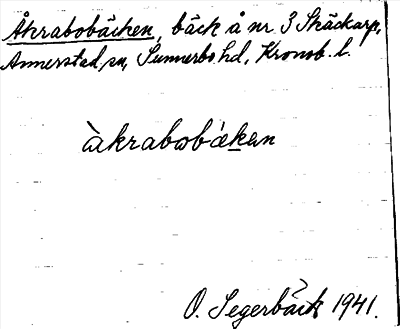 Åkrabobäcken, bäck å nr 3 Skäckarp,
Annerstad sn, Sunnerbo hd, Kronob. l.
àkrabobǽkən
O. Segerbäck 1941.